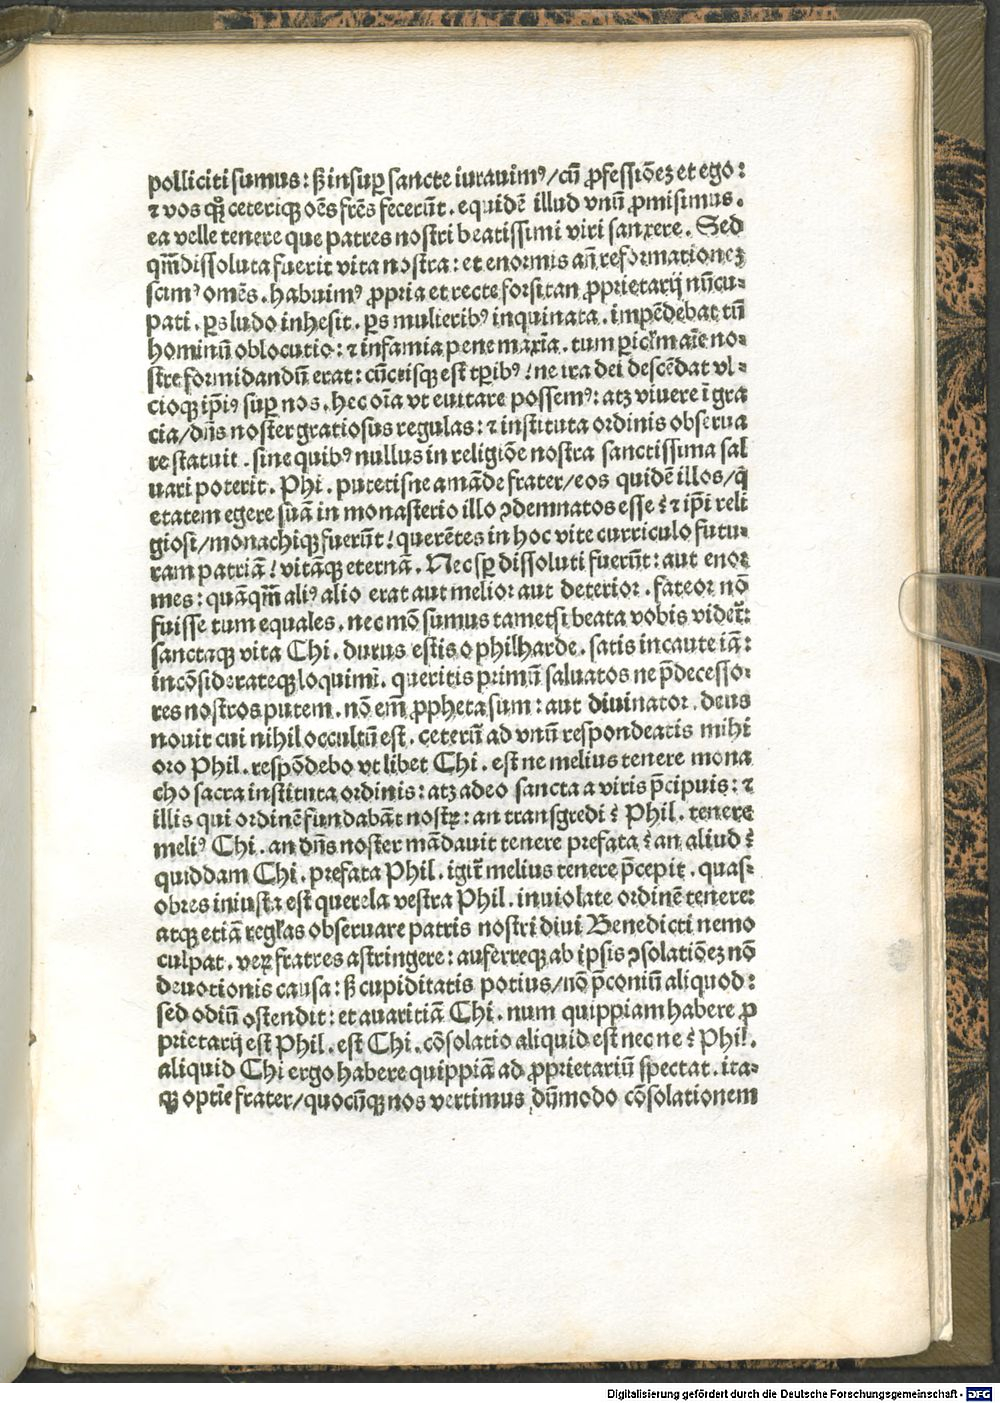 polliciti sumus: ꝭ insuꝑ sancte iurauimꝰ/cū ꝓfessiōeꝫ et ego:
⁊ vos qͥꝫ ceteriqꝫ oēs frēs fecerūt. equidē illud vnū ꝓmisimus.
ea velle tenere que patres nostri beatissimi viri sanxere. Sed
qm̄ dissoluta fuerit vita nostra: et enormis an̄ reformationeꝫ
scimꝰ omēs. habuimꝰ ꝓpria et recte forsitan ꝓprietarij nūcu⸗
pati. ꝑs ludo inhesit. ꝑs mulieribꝰ inquinata. impēdebat tū
hominū oblocutio: ⁊ infamia pene maxīa. tum ꝑicl̄m aīe no⸗
stre formidandū erat: cūctisqꝫ est tꝑibꝰ! ne ira dei descēdat vl⸗
cioqꝫ ip̄iꝰ suꝑ nos. hec oīa vt euitare possemꝰ: atꝫ viuere ī gra
cia/dn̄s noster gratiosus regulas: ⁊ instituta ordinis obserua
re statuit. sine quibꝰ nullus in religiōe nostra sanctissima sal
uari poterit. Phi. putetisne amāde frater/eos quidē illos/q̄
etatem egere suā in monasterio illo ꝯdemnatos esse? ⁊ ip̄i reli
giosi/monachiqꝫ fuerūt! querētes in hoc vite curriculo futu⸗
ram patriā! vitāqꝫ eternā. Nec sꝑ dissoluti fuerūt: aut enor
mes: quāqm̄ aliꝰ alio erat aut melior aut deterior. fateor nō
fuisse tum equales. nec mō sumus tametsi beata vobis videt̄:
sanctaqꝫ vita Chi. durus estis o philharde. satis incaute iā:
incōsiderateqꝫ loquimī. queritis primū saluatos ne p̄decesso⸗
res nostros putem. nō em̄ ꝓpheta sum: aut diuinator. deus
nouit cui nihil occultū est. ceterū ad vnū respondeatis mihi
oro Phil. respōdebo vt libet Chi. est ne melius tenere mona
cho sacra instituta ordinis: atꝫ adeo sancta a viris p̄cipuis: ⁊
illis qui ordinē fundabāt nostꝝ: an transgredi? Phil. tenere
meliꝰ Chi. an dn̄s noster mādauit tenere prefata? an aliud?
quiddam Chi. prefata Phil. igit̄ melius tenere p̄cepit. quas⸗
obres iniusta est querela vestra Phil. inuiolate ordinē tenere:
atqꝫ etiā regl̄as obseruare patris nostri diui Benedicti nemo
culpat. veꝝ fratres astringere: auferreqꝫ ab ipsis ꝯsolatiōeꝫ nō
deuotionis causa: ꝭ cupiditatis potius/nō p̄coniū aliquod:
sed odiū ostendit: et auaritiā Chi. num quippiam habere ꝓ
prietarij est Phil. est Chi. cōsolatio aliquid est nec ne? Phil.
aliquid Chi ergo habere quippiā ad ꝓprietariū spectat. ita⸗
qꝫ optīe frater/quocūqꝫ nos vertimus dūmodo cōsolationem
Digitalisierung gefördert durch die Deutsche Forschungsgemeinschaft - DFG